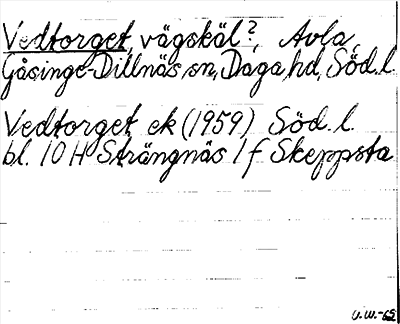 Vedtorget, vägskäl?, Avla,
Gåsinge-Dillnäs sn, Daga hd, Söd. l.
Vedtorget ek (1959) Söd. l.
bl. 10 H Strängnäs 1 f Skeppsta
U.W.-65